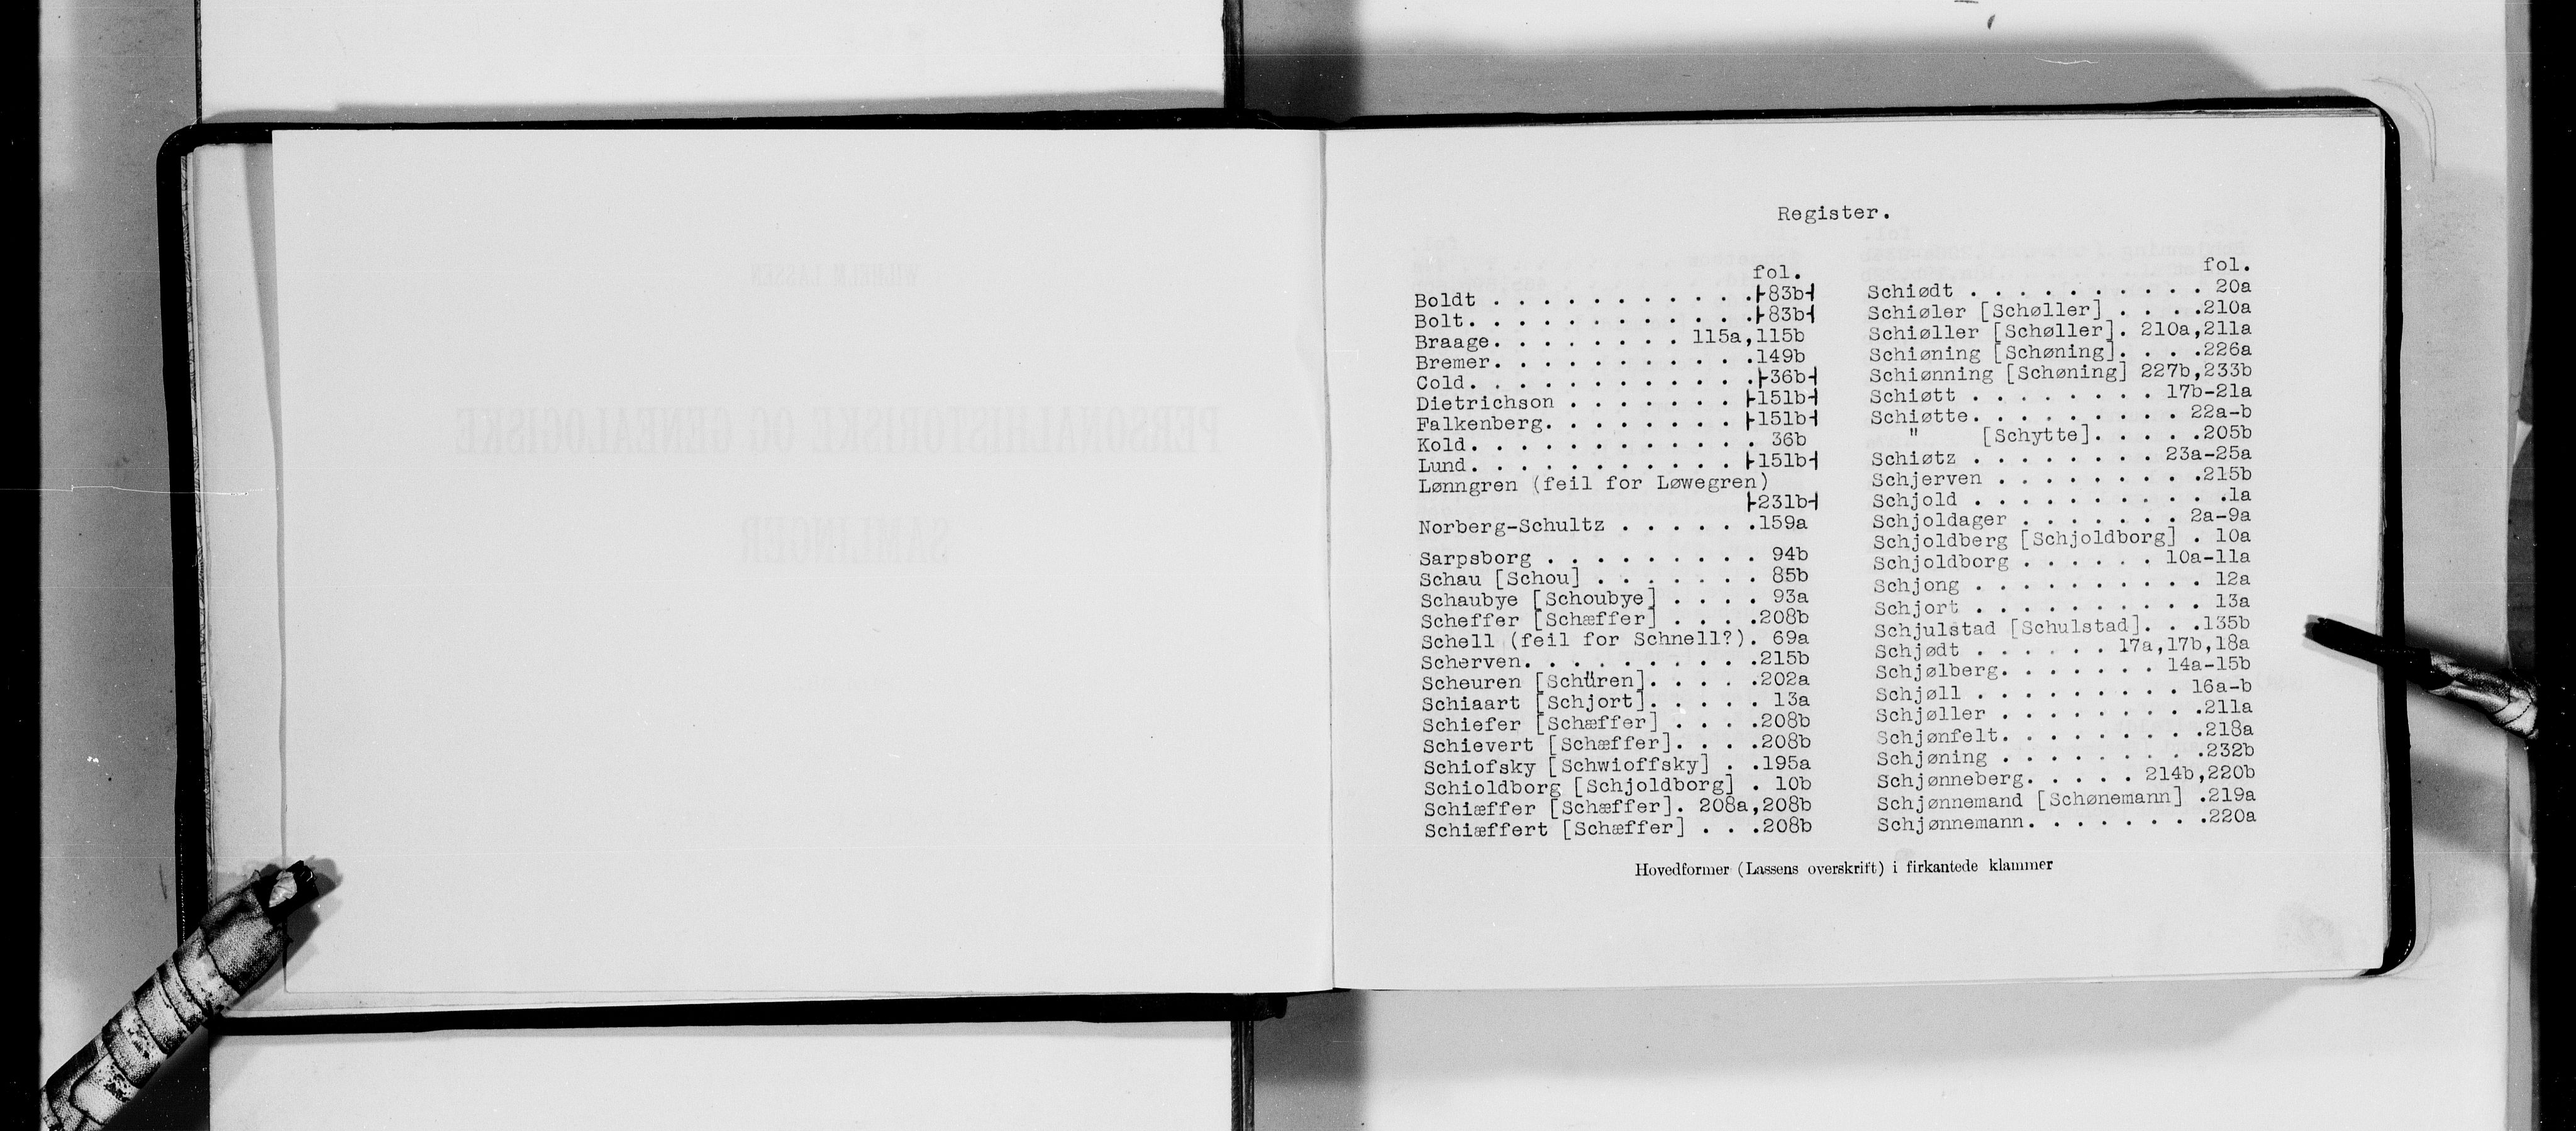 Register.
fol.
Boldt . . . . . . . . . . . .⊦83b⊣
Bolt. . . . . . . . . . . . .⊦83b⊣
Braage. . . . . . . . 115a,115b
Bremer. . . . . . . . . . . .149b
Cold. . . . . . . . . . . . .⊦36b⊣
Dietrichson . . . . . . . ⊦151b⊣
Falkenberg. . . . . . . . ⊦151b⊣
Kold. . . . . . . . . . . . 36b
Lund. . . . . . . . . . . ⊦151b⊣
Lønngren (feil for Løwegren)
⊦231b⊣
Norberg-Schultz . . . . . .159a
Sarpsborg . . . . . . . . . 94b
Schau [Schou] . . . . . . . 85b
Schaubye [Schoubye] . . . . 93a
Scheffer [Schæffer] . . . .208b
Schell (feil for Schnell?). 69a
Scherven. . . . . . . . . .215b
Scheuren [Schüren]. . . . .202a
Schiaart [Schjort]. . . . . 13a
Schiefer [Schæffer] . . . .208b
Schievert [Schæffer]. . . .208b
Schiofsky [Schwioffsky] . .195a
Schioldborg [Schjoldborg] . 10b
Schiæffer [Schæffer]. 208a,208b
Schiæffert [Schæffer] . . .208b
fol.
Schiødt . . . . . . . . . . 20a
Schiøler [Schøller] . . . .210a
Schiøller [Schøller]. 210a,211a
Schiøning [Schøning]. . . .226a
Schiønning [Schøning] 227b,233b
Schiøtt . . . . . . . . 17b-21a
Schiøtte. . . . . . . . . 22a-b
" [Schytte]. . . . .205b
Schiøtz . . . . . . . . 23a-25a
Schjerven . . . . . . . . .215b
Schjold . . . . . . . . . . .1a
Schjoldager . . . . . . . 2a-9a
Schjoldberg [Schjoldborg] . 10a
Schjoldborg . . . . . . 10a-11a
Schjong . . . . . . . . . . 12a
Schjort . . . . . . . . . . 13a
Schjulstad [Schulstad]. . .135b
Schjødt . . . . . . 17a,17b,18a
Schjølberg. . . . . . . 14a-15b
Schjøll . . . . . . . . . 16a-b
Schjøller . . . . . . . . .211a
Schjønfelt. . . . . . . . .218a
Schjøning . . . . . . . . .232b
Schjønneberg. . . . . 214b,220b
Schjønnemand [Schønemann] .219a
Schjønnemann. . . . . . . .220a
Hovedformer (Lassens overskrift) i firkantede klammer